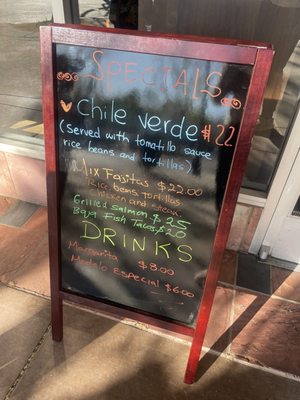 SPECIALS
Chile verde $22
(served with tomatillo sauce
rice beans and tortillas)
Mix Fajitas $22.00
Rice beans tortillas
chicken and steak
Grilled Salmon $25
Baja Fish Tacos $20
DRINKS
Margarita $8.00
Modelo Especial $6.00